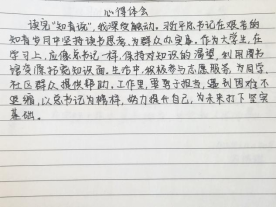 心得体会
读完"知青说",我深受触动。习近平总书记在艰苦的
知青岁月中坚持读书思考,为群众办实事。作为大学生,在
学习上,应像总书记一样,保持对知识的渴望,利用图书
馆资源拓宽知识面。生活中,积极参与志愿服务,为同学、
社区群众提供帮助。工作里,要勇于担当,遇到困难不
退缩,以总书记为榜样,努力提升自己,为未来打下坚实
基础。